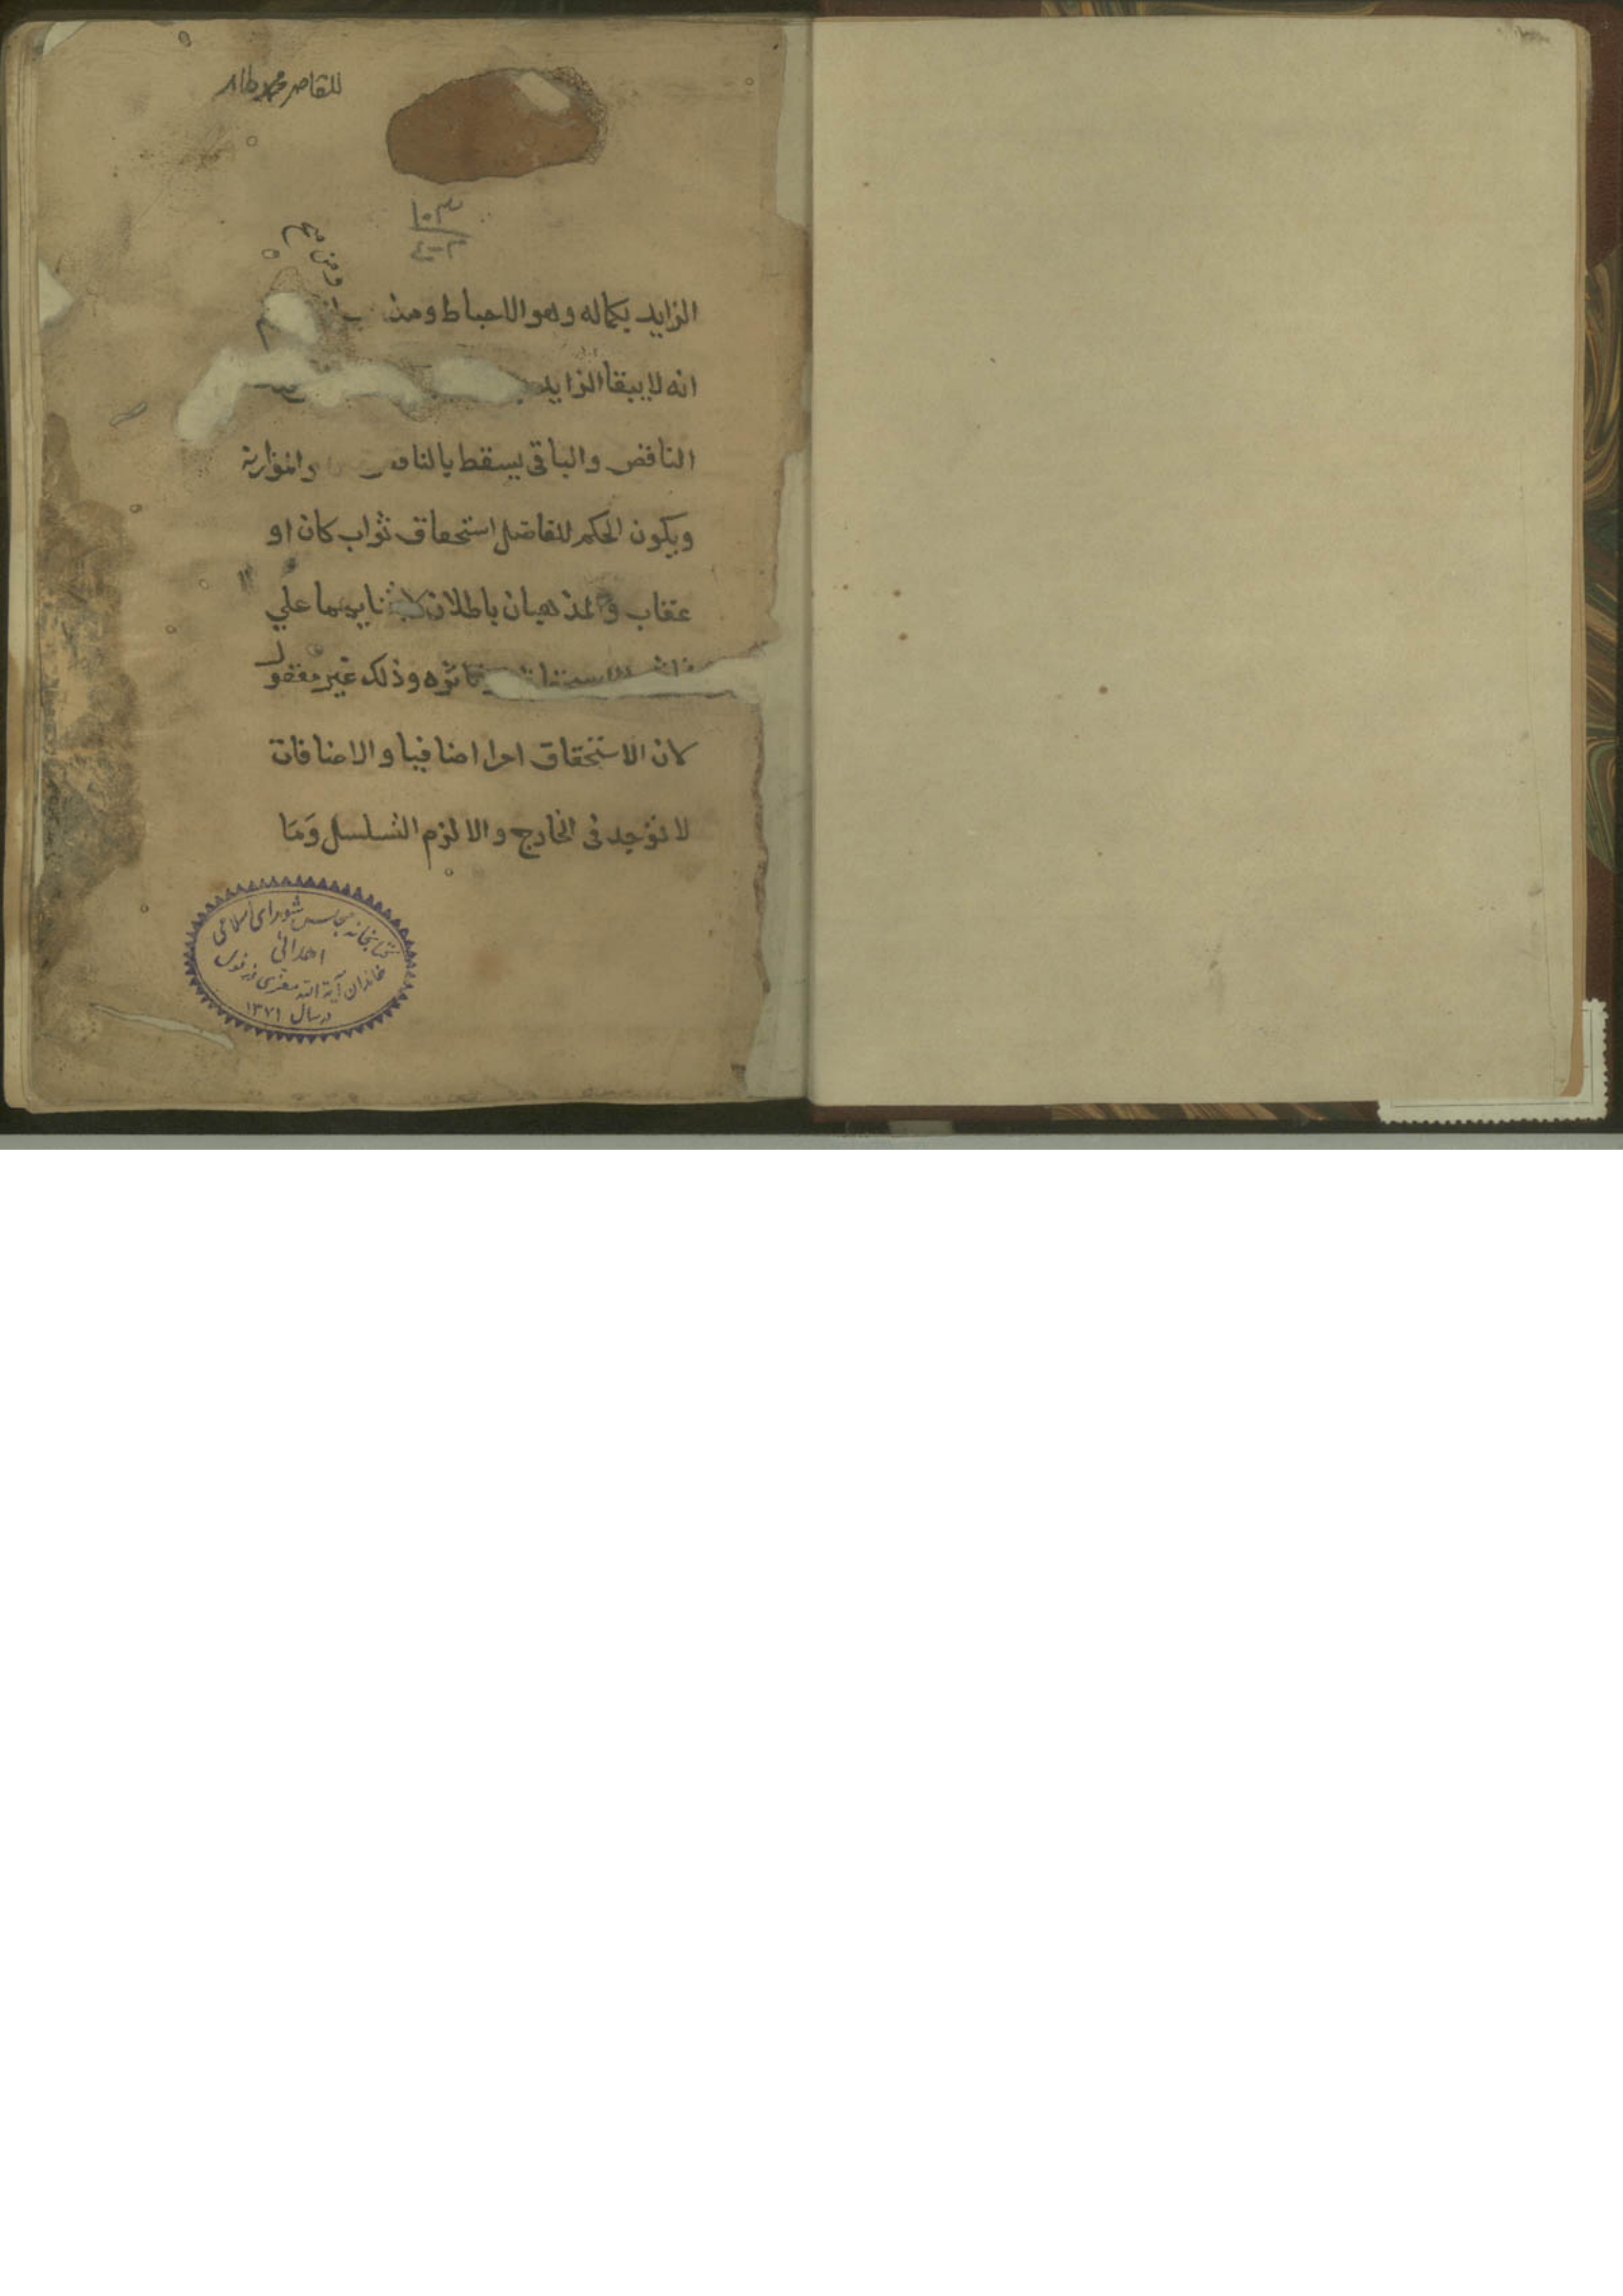 للقاصر محمد طاهر
الزايد بكماله وهو الاحباط ومذ
انه لا يبقا الزايد
الناقص والباقى يسقط بالناقص والموازنة
ويكون الحكم للفاضل استحقاق ثواب كان او
عقاب والمذهبان باطلان لابتنايهما على
وذلك غير معقول
لان الاستحقاق امرا اضافيا والاضافات
لا توجد فى الخارج والا لزم التسلسل وَمَا
كتابخانه مجلس شورای اسلامی
اهدائی
خاندان آیة الله معزی دزفولی
در سال ۱۳۷۱